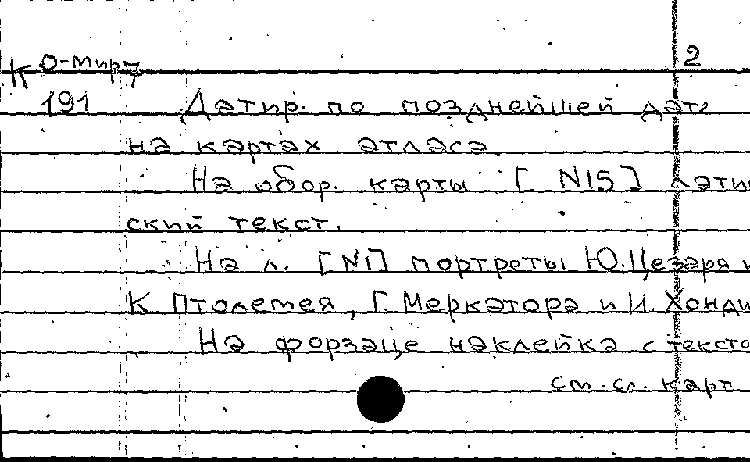 К О-Мир/7 2
191 Датир. по позднейшей дате
на картах атласа.
На обор. карты [N15] латин
ский текст.
На л. [N1] портреты Ю. Цезаря и
К Птолемея, Г. Меркатора и И. Хонди
На форзаце наклейка с тексто
см. сл. карт